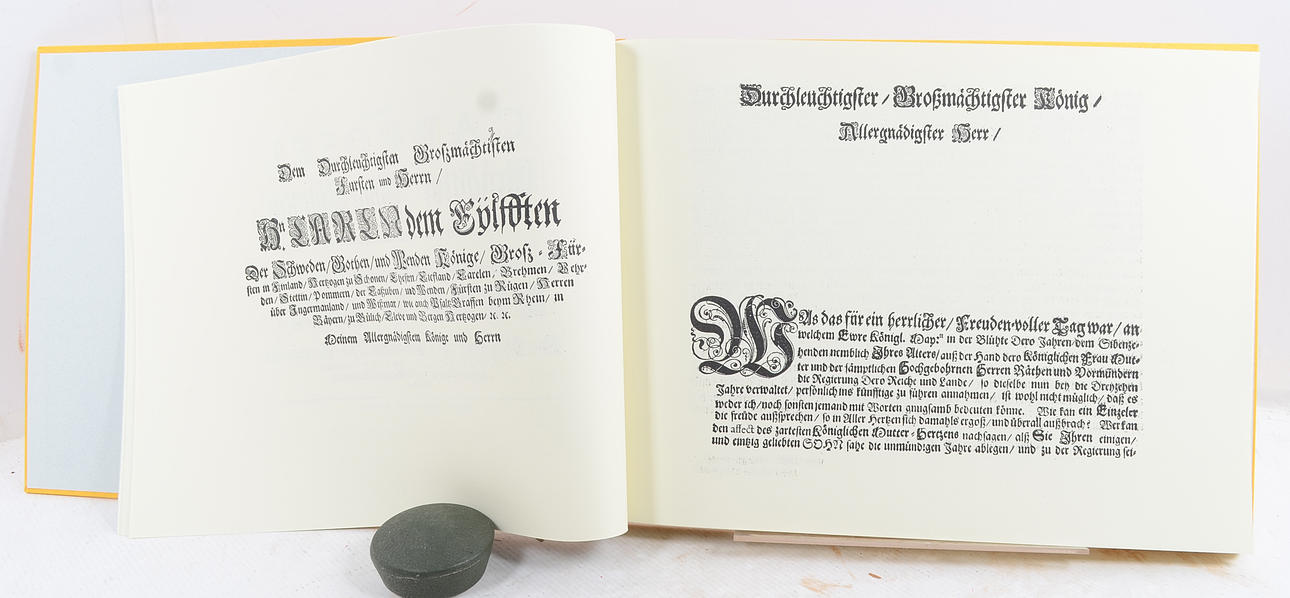 Dem Durchleuchtigsten Großmächtisten
Fursten und Herrn /
Hn. CARLN dem Eylfften
Der Schweden/Gothen/und Wenden Könige/ Groß-Für-
sten in Finland/Hertzogen zu Schonen/Ehesten/Liefland/Carelen/Brehmen/ Vehr-
den/Stettin/Pommern/der Caßuben/und Wenden/Fürsten zu Rügen/Herren
über Ingermanland/und Wißmar/wie auch Pfaltz-Graffen beym Rhein/ in
Bäyern/zu Gülich/Cleve und Bergen Hertzogen/ ꝛc. ꝛc.
Meinem Allergnädigsten Könige und Herrn
Durchleuchtigster/Großmächtigster König/
Allergnädigster Herr/
WAs das für ein herrlicher/Freuden-voller Tag war/an
welchem Ewre Königl. May:ᵗ in der Blühte Dero Jahren/dem Sibenze-
henden nemblich Ihres Alters/auß der Hand dero Königlichen Frau Mut-
ter und der sämptlichen Hochgebohrnen Herren Räthen und Vormündern
die Regierung Dero Reiche und Lande/ so dieselbe nun bey die Dreyzehen
Jahre verwaltet/persönlich ins künfftige zu führen annahmen/ ist wohl nicht müglich/daß es
weder ich/noch sonsten jemand mit Worten gnugsamb bedeuten könne. Wie kan ein Einzeler
die freüde außsprechen/so in Aller Hertzen sich damahls ergoß/und überall außbrach? Wer kan
den affect des zartesten Königlichen Mutter-Hertzens nachsagen/alß Sie Ihren einigen/
und eintzig geliebten SOHN sahe die unmündigen Jahre ablegen/und zu der Regierung sei-